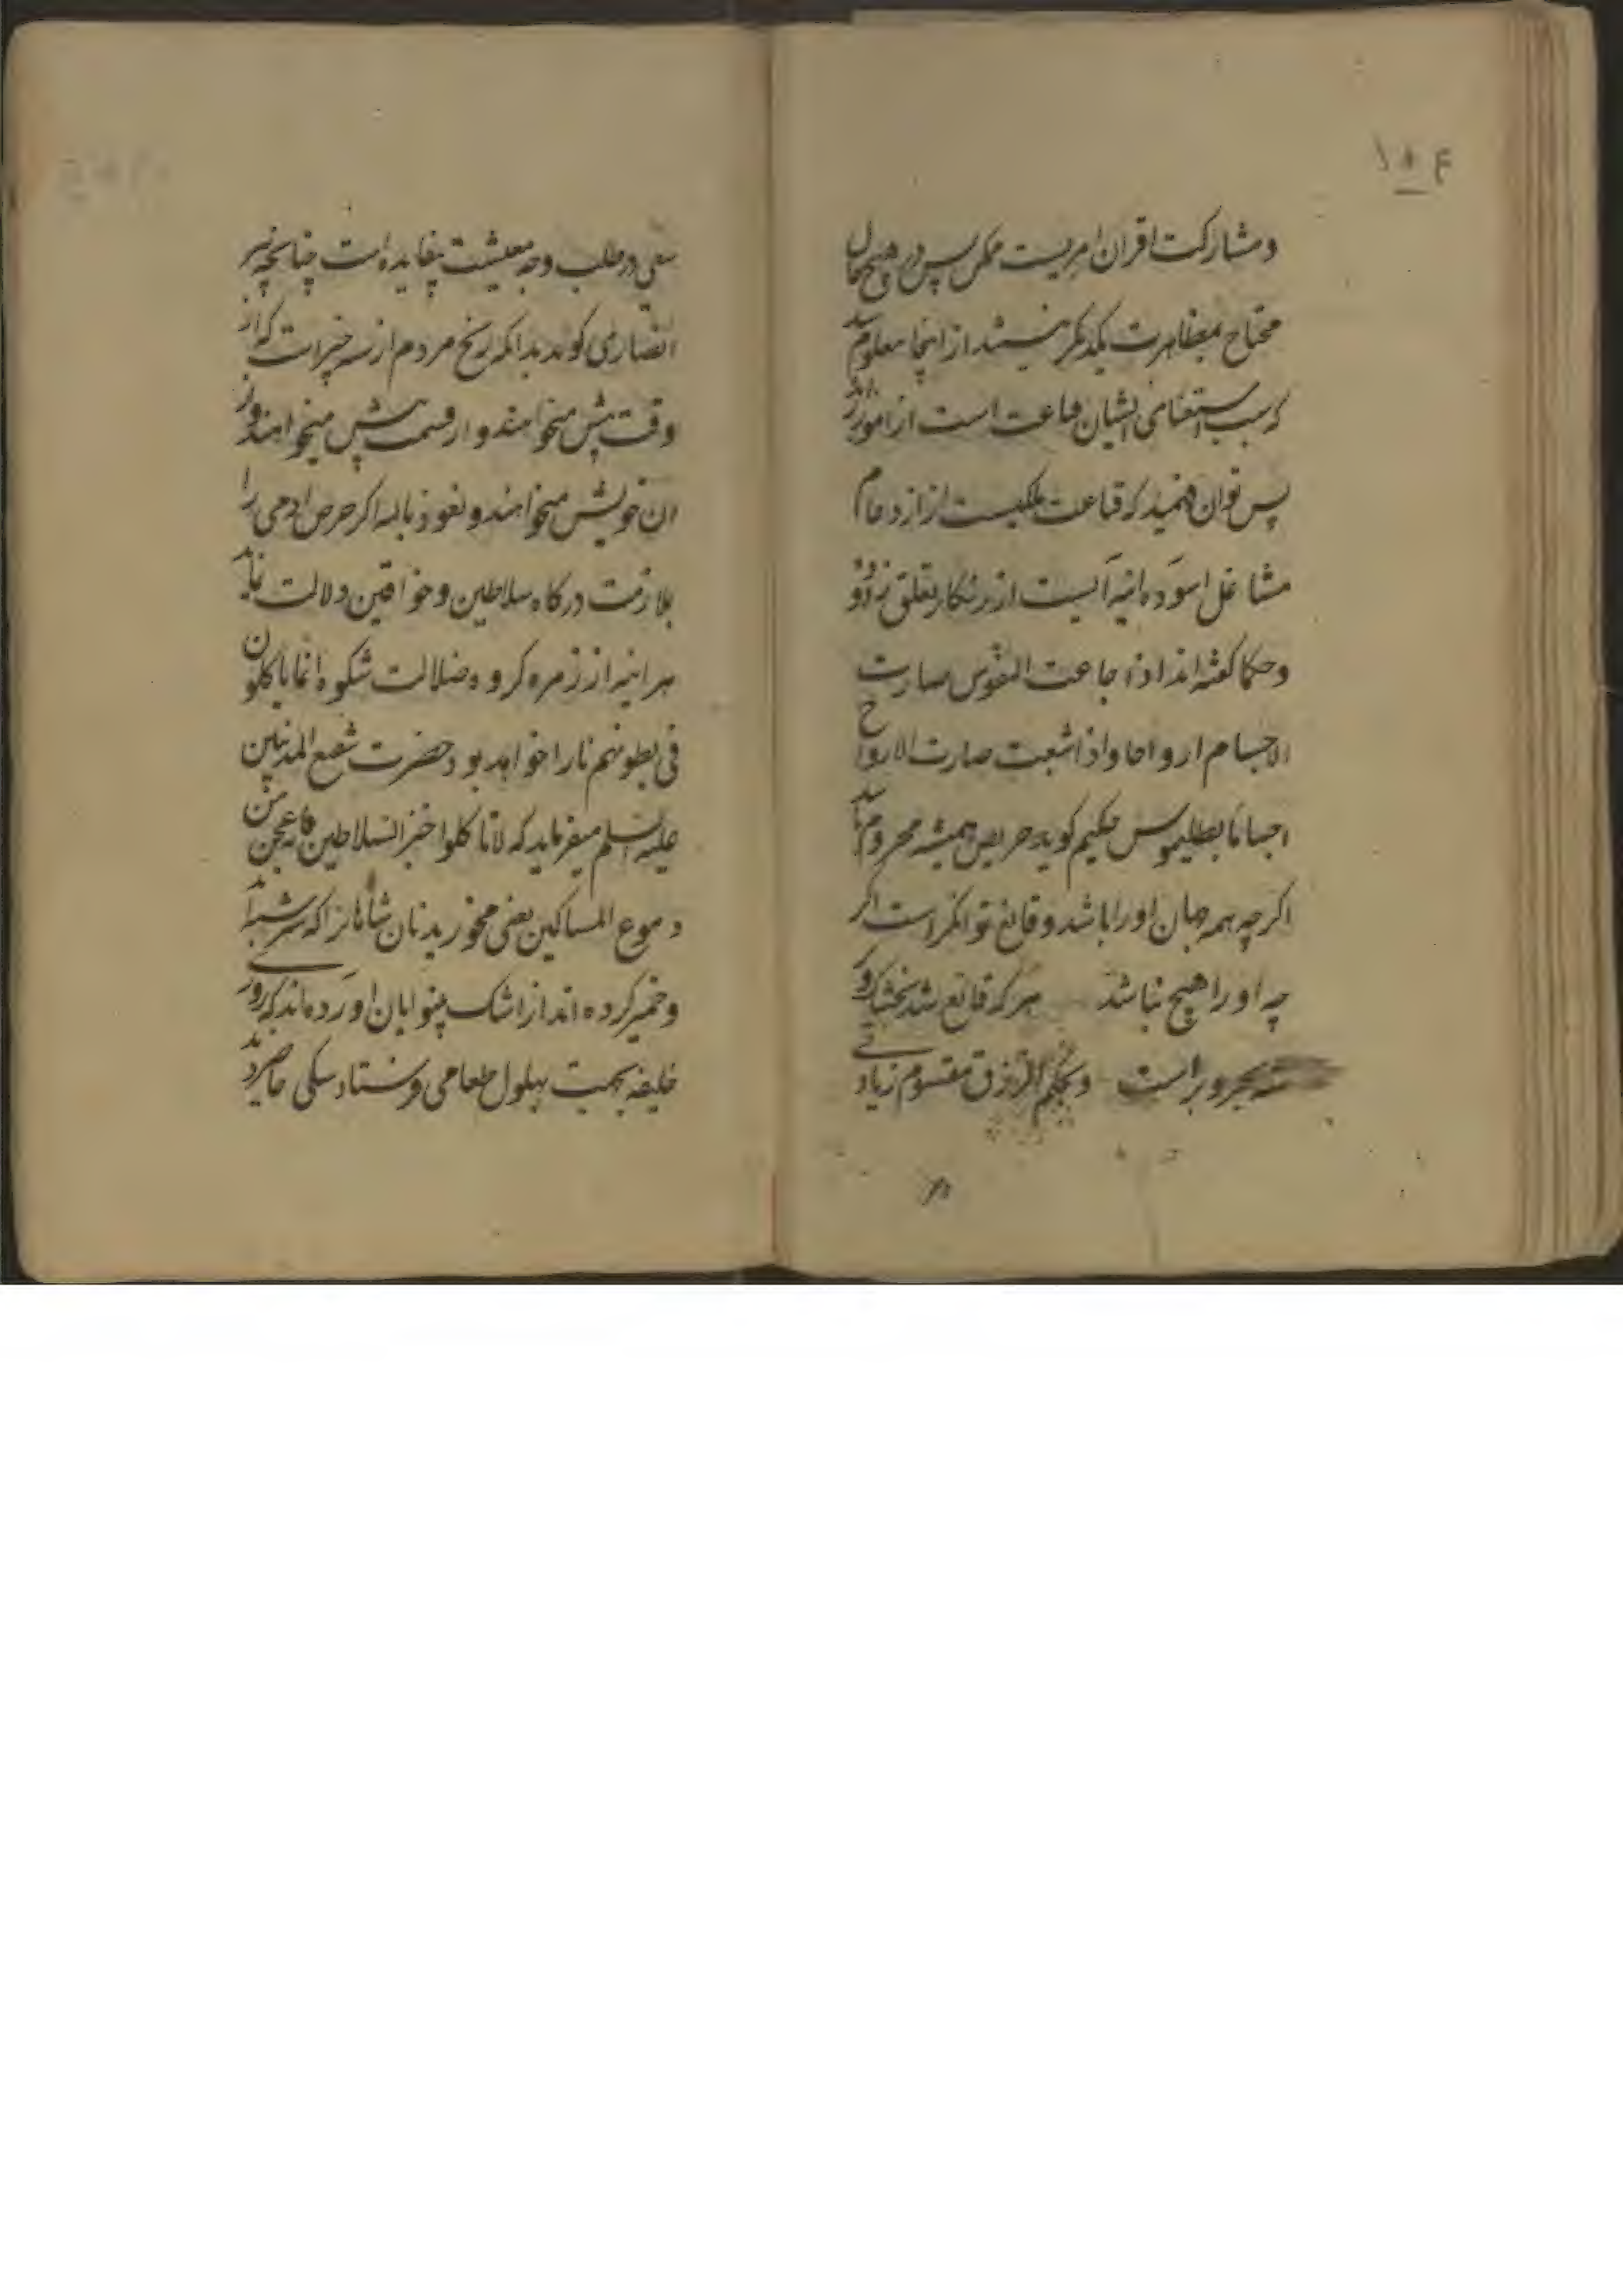 ۱۰۴
و مشارکت اقران امریست ممکن پس در هیچ حال
محتاج بمظاهرت یکدیگر نیستند از اینجا معلوم شد
که سبب استغنای ایشان قناعت است از امور
پس توان فهمید که قناعت ملکیست از ازدحام
مشاغل اسوده اینه ایست از زنکار تعلق زدوده
و حکما کفته اند اذا جاعت النفوس صارت
الاجسام ارواحا و اذا شبعت صارت الارواح
اجساما بطلیموس حکیم کوید حریص همیشه محروم باشد
اکر چه همه جهان او را باشد و قانع توانکر است اکر
چه او را هیچ نباشد هر که قانع شد بخشک و
تر شه بحر و بر است و بحکم الرزق مقسوم زیادتی
سعی در طلب وجه معیشت بیفایده است چنانچه پیر
انصاری کوید بدانکه رنج مردم از سه چیز است که از
وقت پیش میخواهند و از قسمت بیش میخواهند و از
ان خویش میخواهند و نعوذ بالله اکر حرص ادمی را
بملازمت درکاه سلاطین و خواقین دلالت نماید
هر اینه از زمره کروه ضلالت شکوه انما یاکلون
فی بطونهم نارا خواهد بود حضرت شفیع المذنبین
علیه السلم میفرماید که لا تاکلوا خبز السلاطین فانه عجن من
دموع المساکین یعنی مخورید نان شاهانرا که سرشته اند
و خمیر کرده اند از اشک بینوایان اورده اند که روزی
خلیفه بجهت بهلول طعامی فرستاد سکی حاضر بود